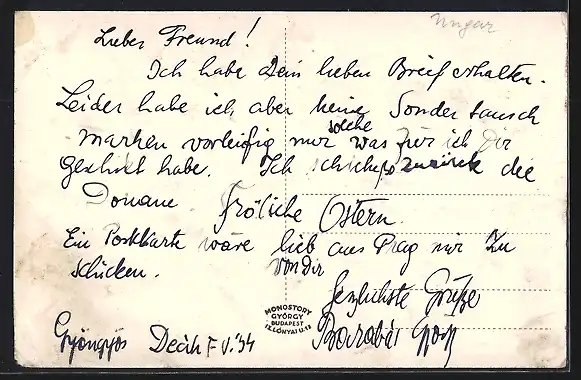 Ungar
Lieber Freund!
Ich habe Dein lieben Brief erhalten.
Leider habe ich aber keine Sonder tausch
marken vorleifig nur solche was für ich Dir
geschickt habe. Ich schicke zurück die
Donaue Fröliche Ostern
Ein Postkarte wäre lieb aus Prag mir zu
schicken. von dir
herzlichste Grüße
MONOSTORY
GYÖRGY
BUDAPEST
Gyöngyös